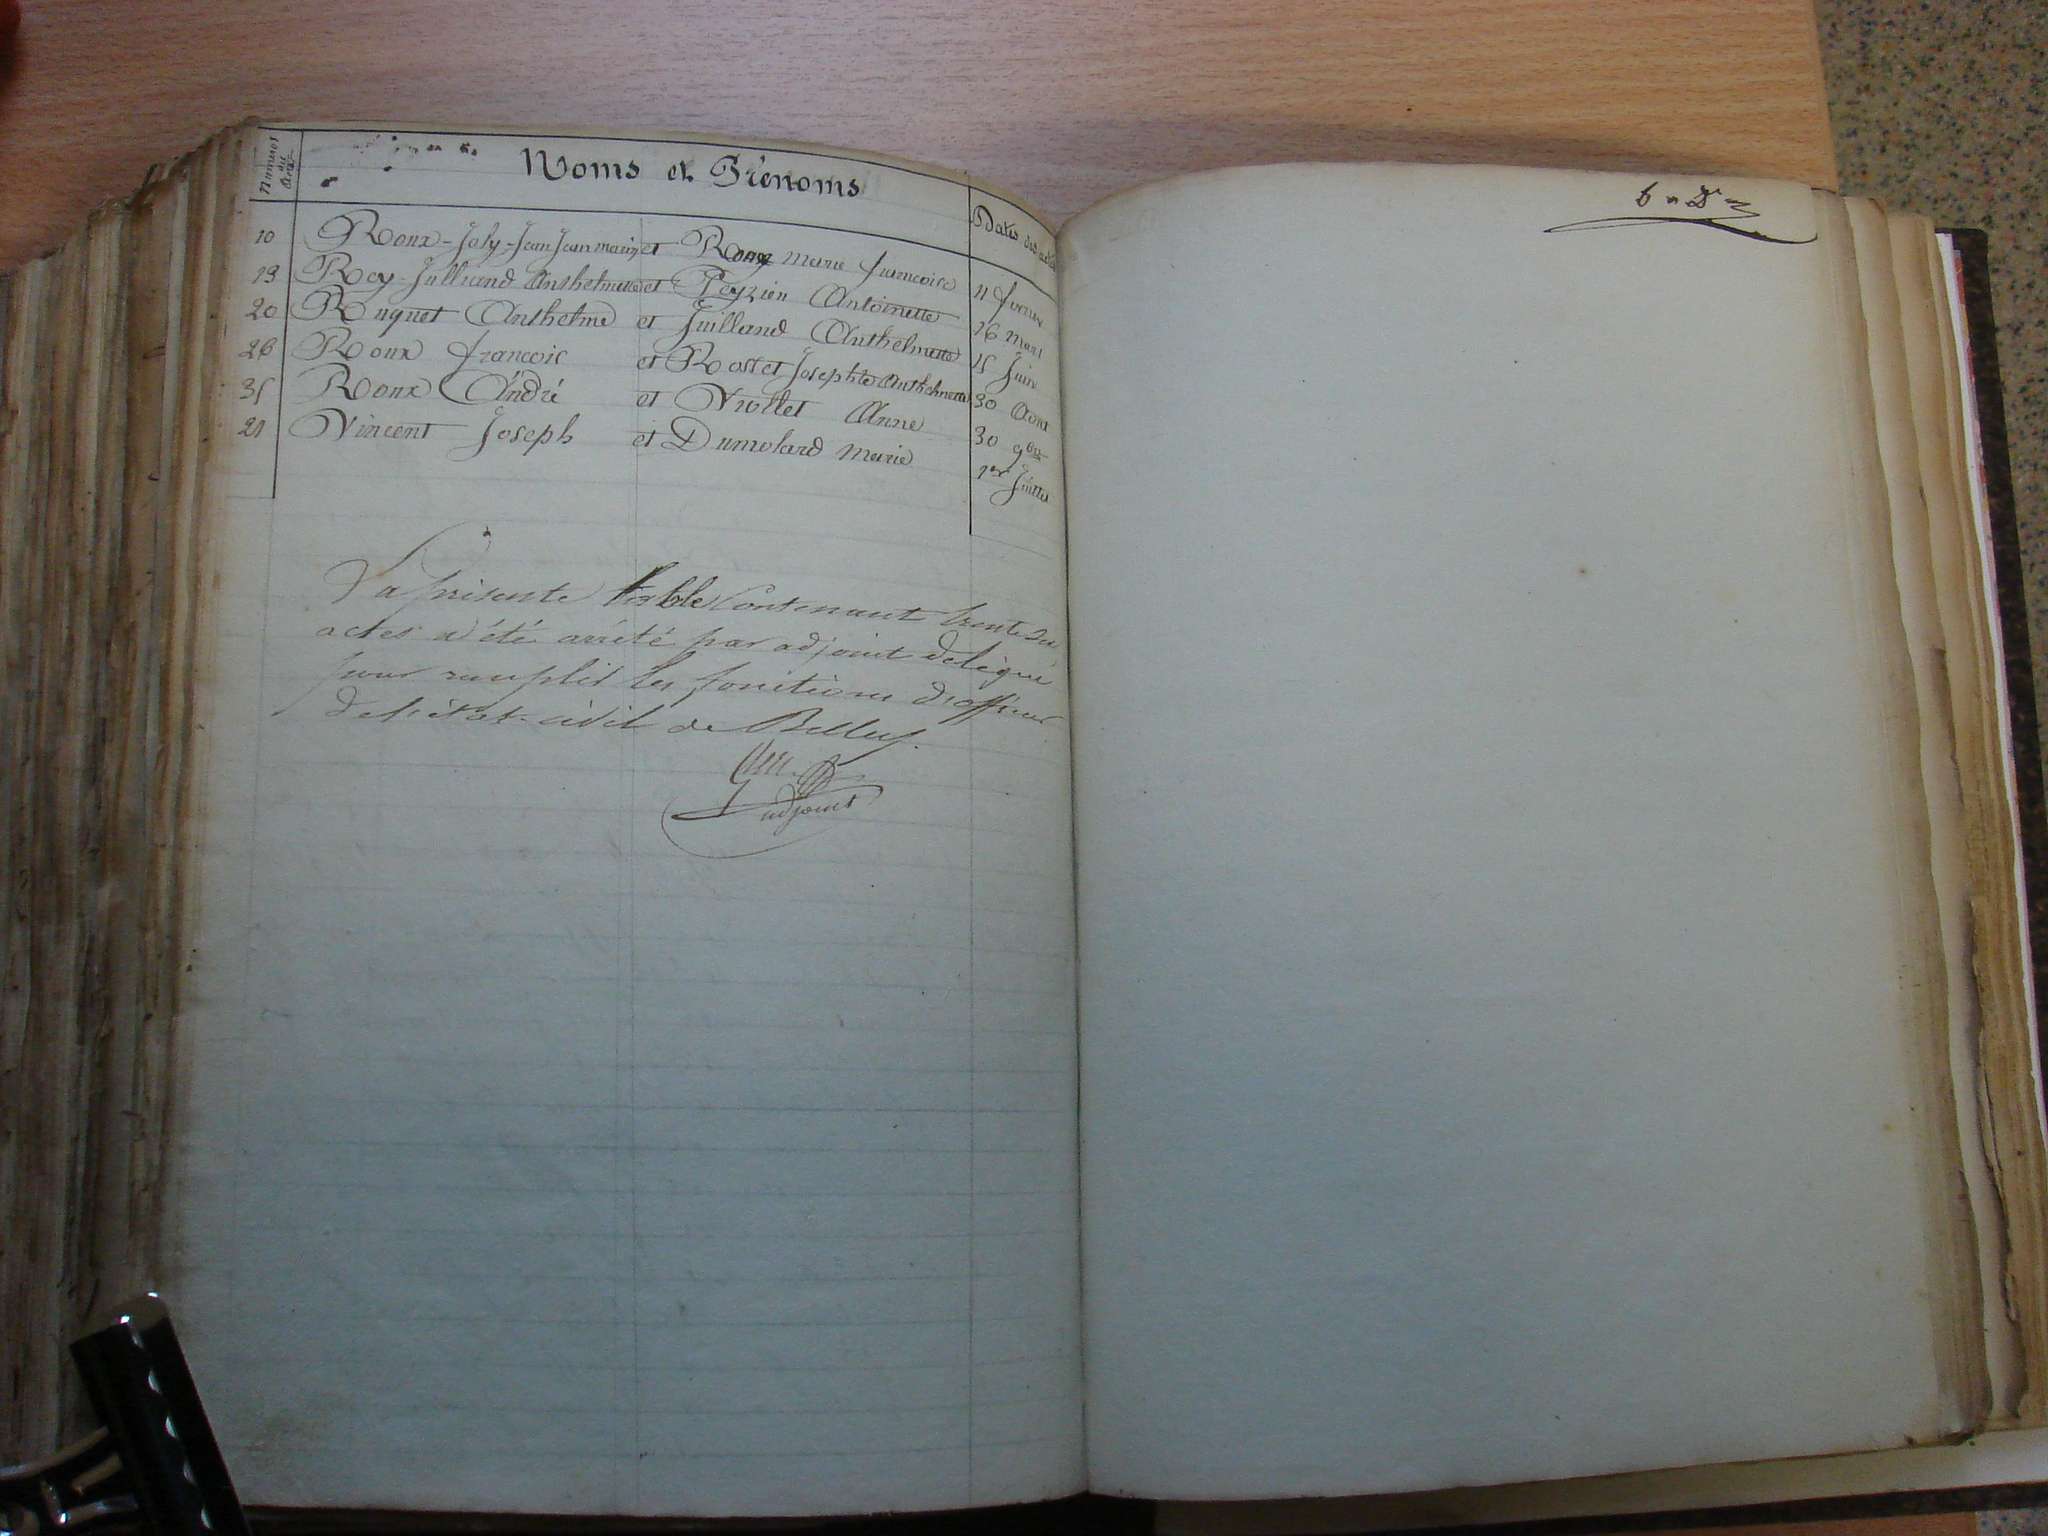 Numéros des Actes
Noms et Prénoms
Dates des actes
10 Roux-Joly-Jean Jean marie et Roux marie francoise 11 fevrier
19 Roy-Julliand Anthelmette et Peyzieu Antoinette 16 mars
20 Ruquet Anthelme et Juilland Anthelmette 15 Juin
26 Roux francois et Rosset Josephte Anthelmette 30 Aout
35 Roux André et Viollet Anne 30 9bre
21 Vincent Joseph et Dumolard marie 1er Juillet
La présente table Contenant trente
actes a été arrêté par adjoint délégué
pour remplir les fonctions d'officier
de l'état-civil de Belley.
adjoint